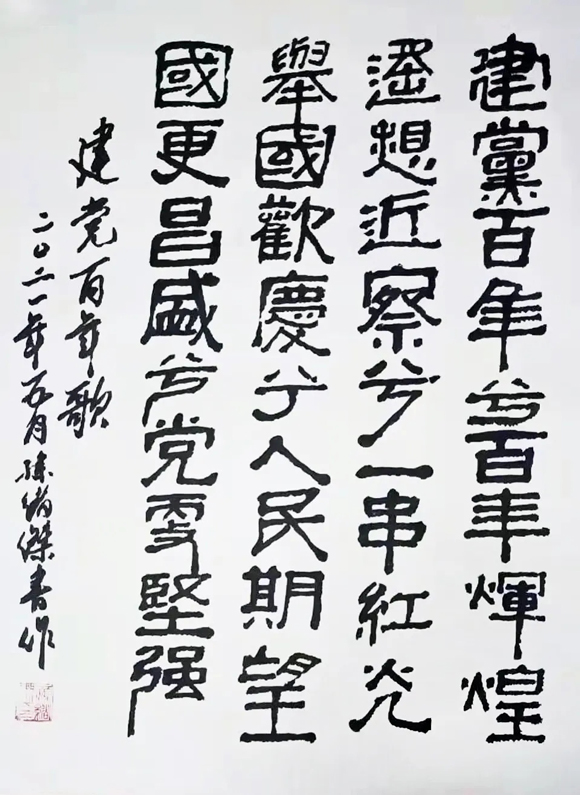 建黨百年兮百年輝煌
遥想近察兮一串紅光
舉國歡慶兮人民期望
國更昌盛兮党更堅强
建党百年歌
二〇二一年五月孫緒傑書作